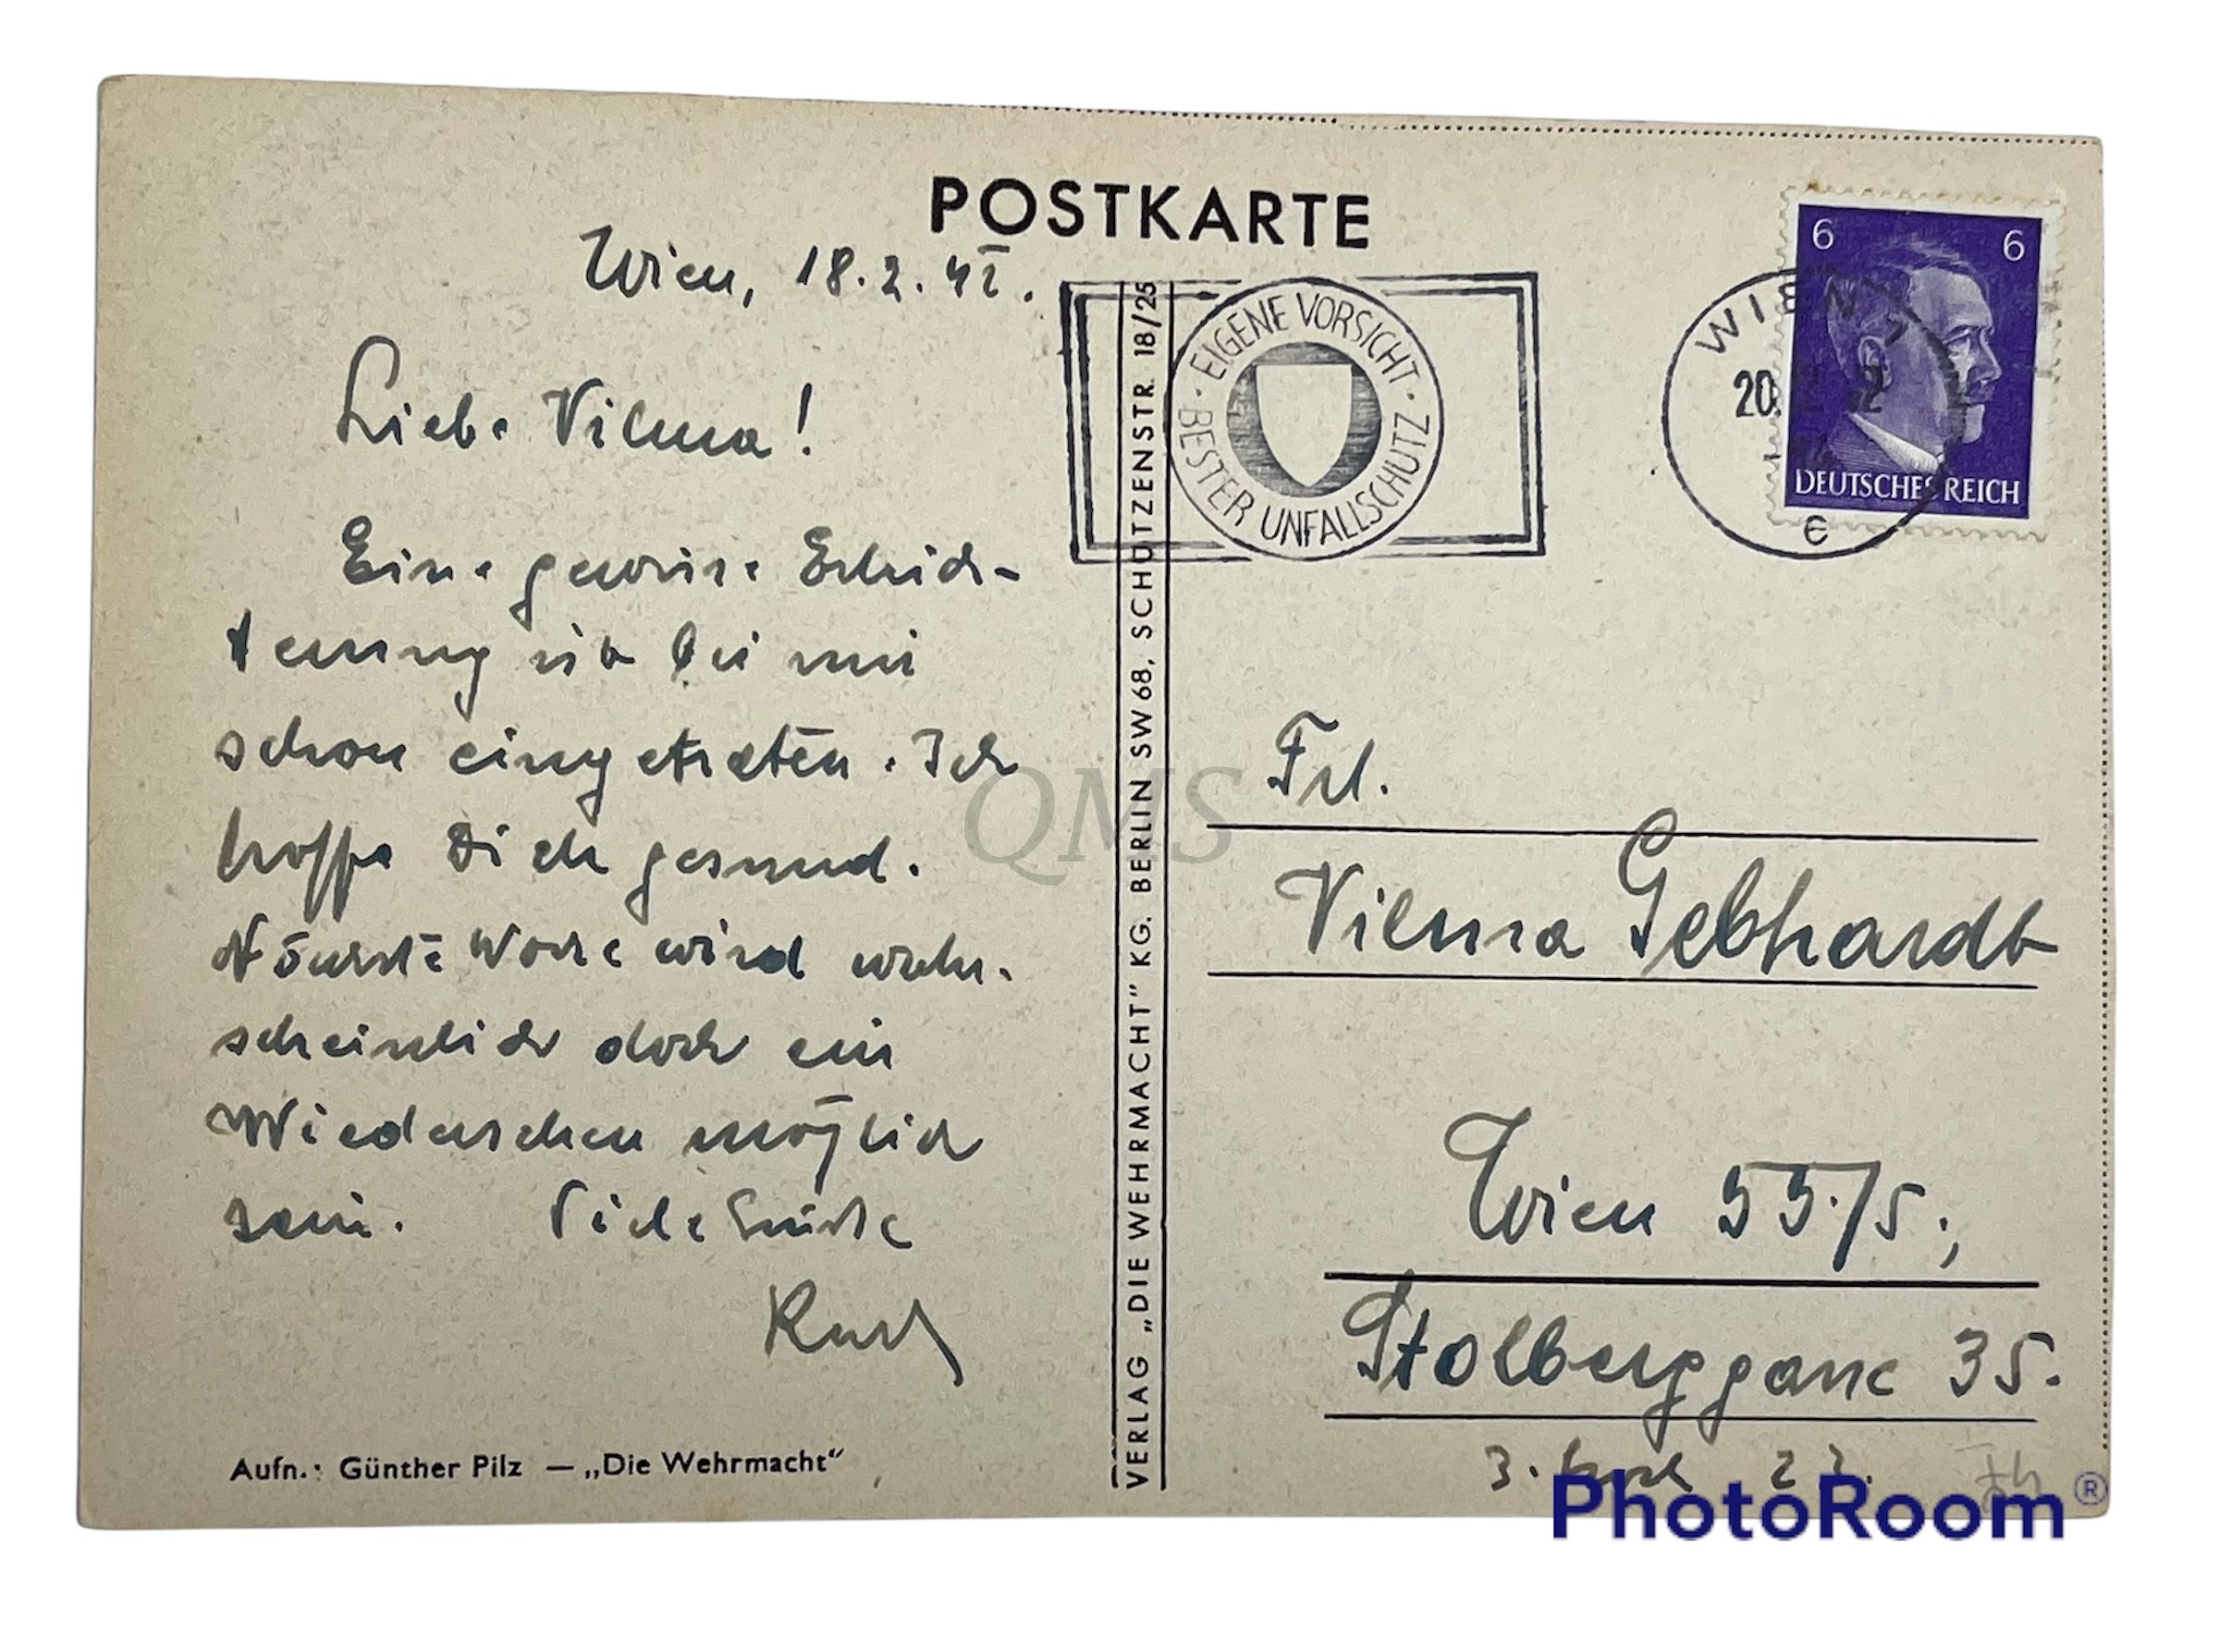 POSTKARTE
Wien, 18.2.42.
Liebe Vilma!
Eine gewisse Erleich-
terung ist bei mir
schon eingetreten. Ich
hoffe Dich gesund.
Nächste Woche wird wahr-
scheinlich doch ein
Wiedersehen möglich
sein. Viele Grüße
Aufn.: Günther Pilz — „Die Wehrmacht“
VERLAG „DIE WEHRMACHT“ KG. BERLIN SW 68, SCHÜTZENSTR. 18/25
EIGENE VORSICHT · BESTER UNFALLSCHUTZ ·
WIEN
20.
e
6 6
DEUTSCHES REICH
Frl.
Vilma Gebhardt
Wien 55./5.;
Stolberggasse 35.
3. 22.
QMS
PhotoRoom®